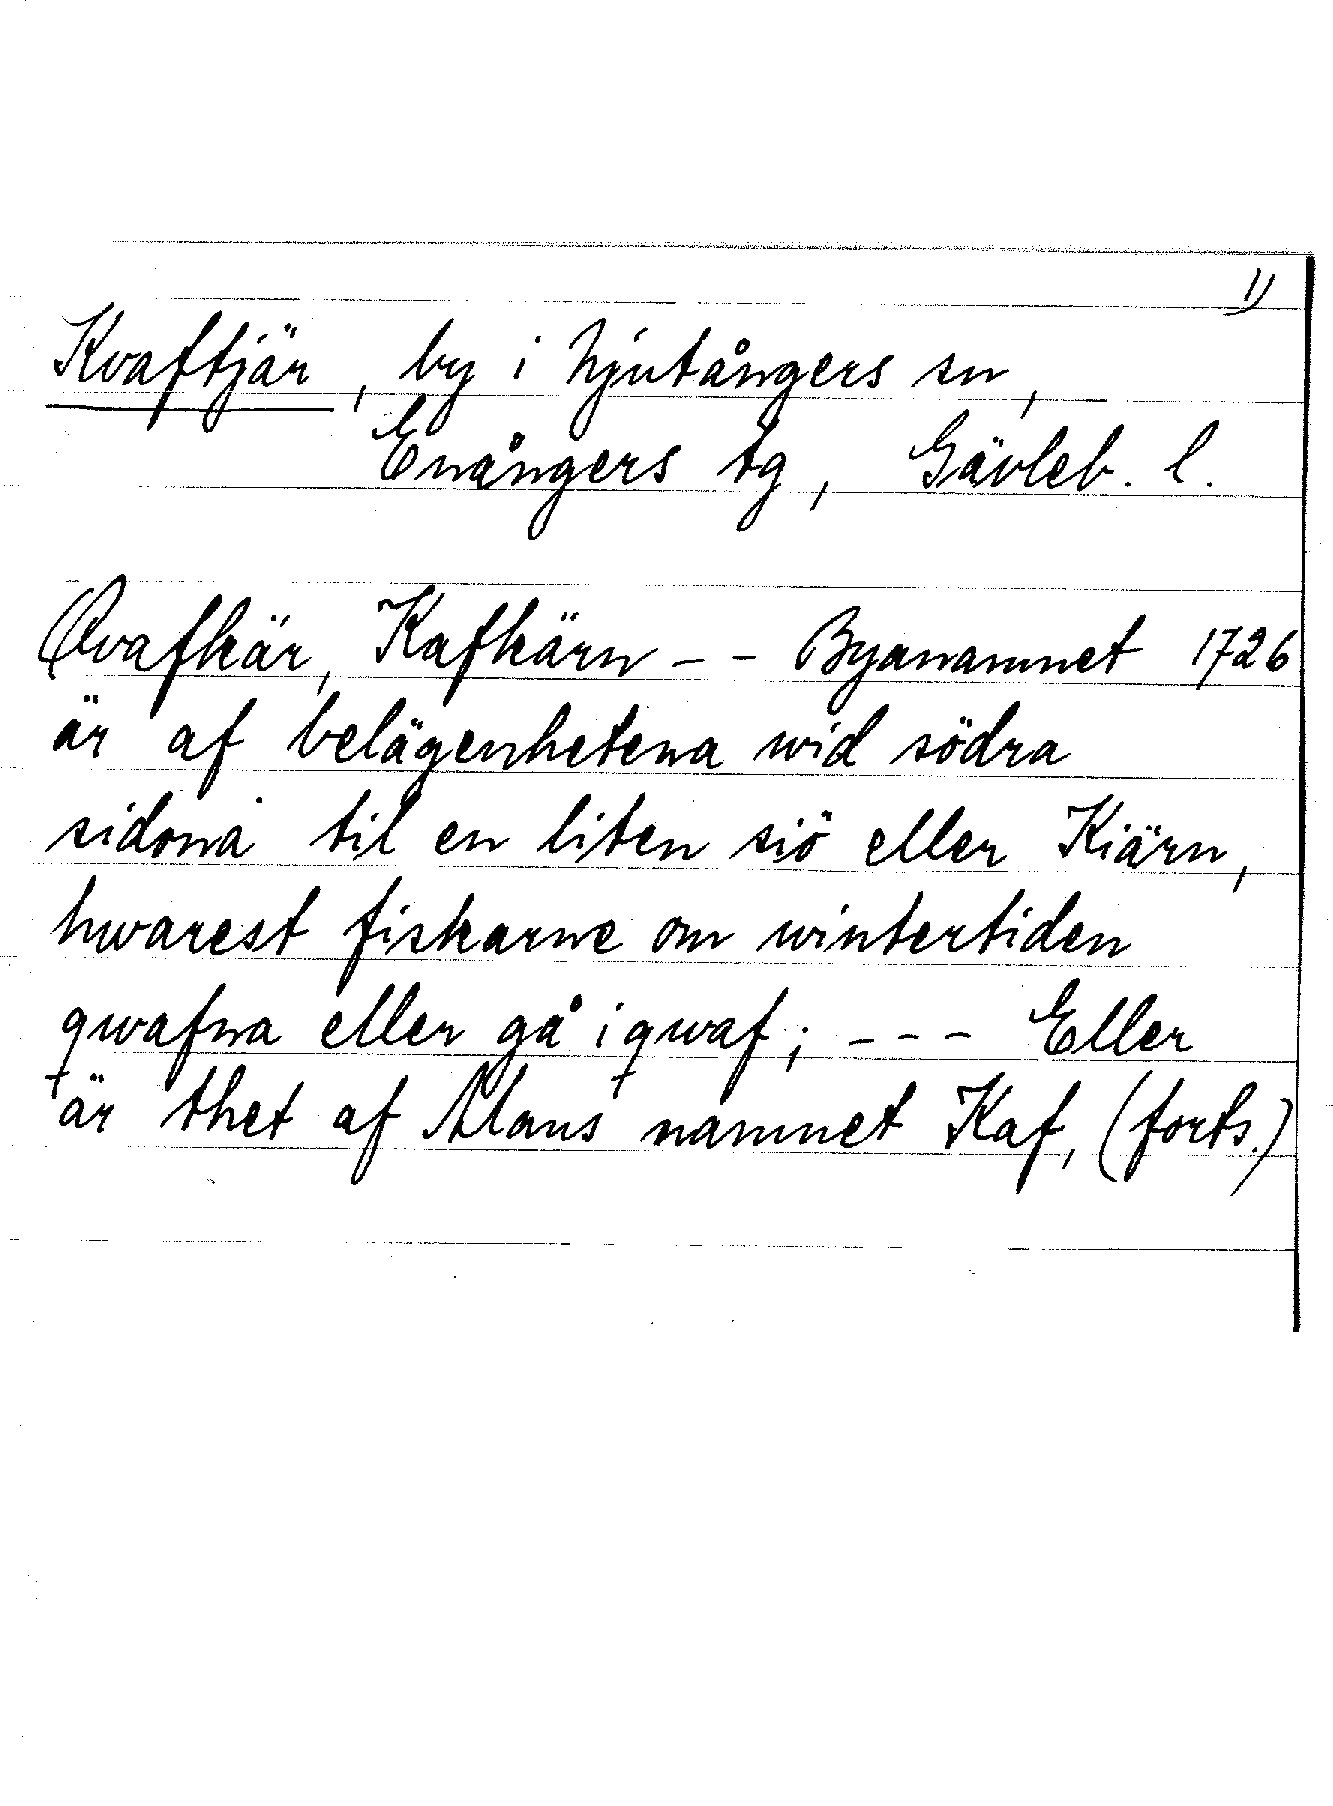 1)
Kvaftjär, by i Njutångers sn,
Enångers tg, Gävleb. l.
Qvafkär, Kafkärn - - Byanamnet 1726
är af belägenhetena wid södra
sidona til en liten siö eller Kiärn,
hwarest fiskarne om wintertiden
qwafna eller gå i qwaf; - - - Eller
är thet af Mans namnet Kaf, (forts.)